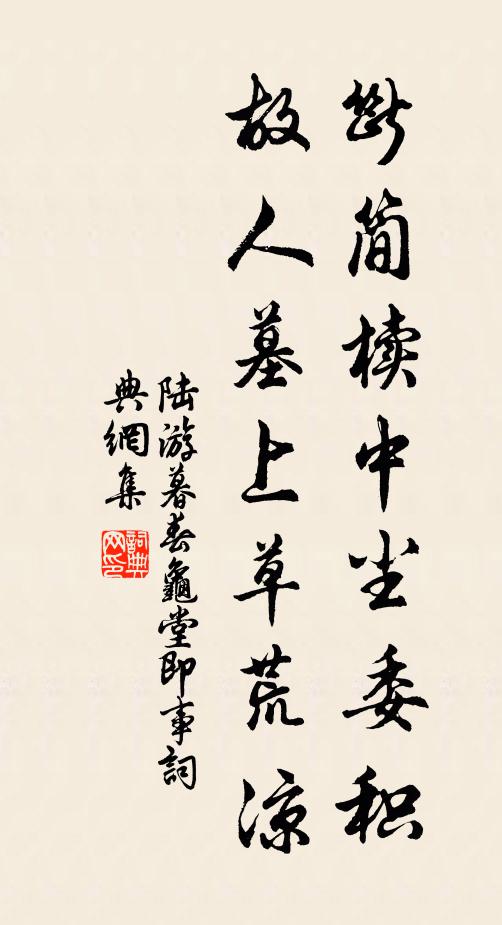 断简椟中尘委积
故人墓上草荒凉
陆游暮春龜堂即事詞
典網集
詞典
网印